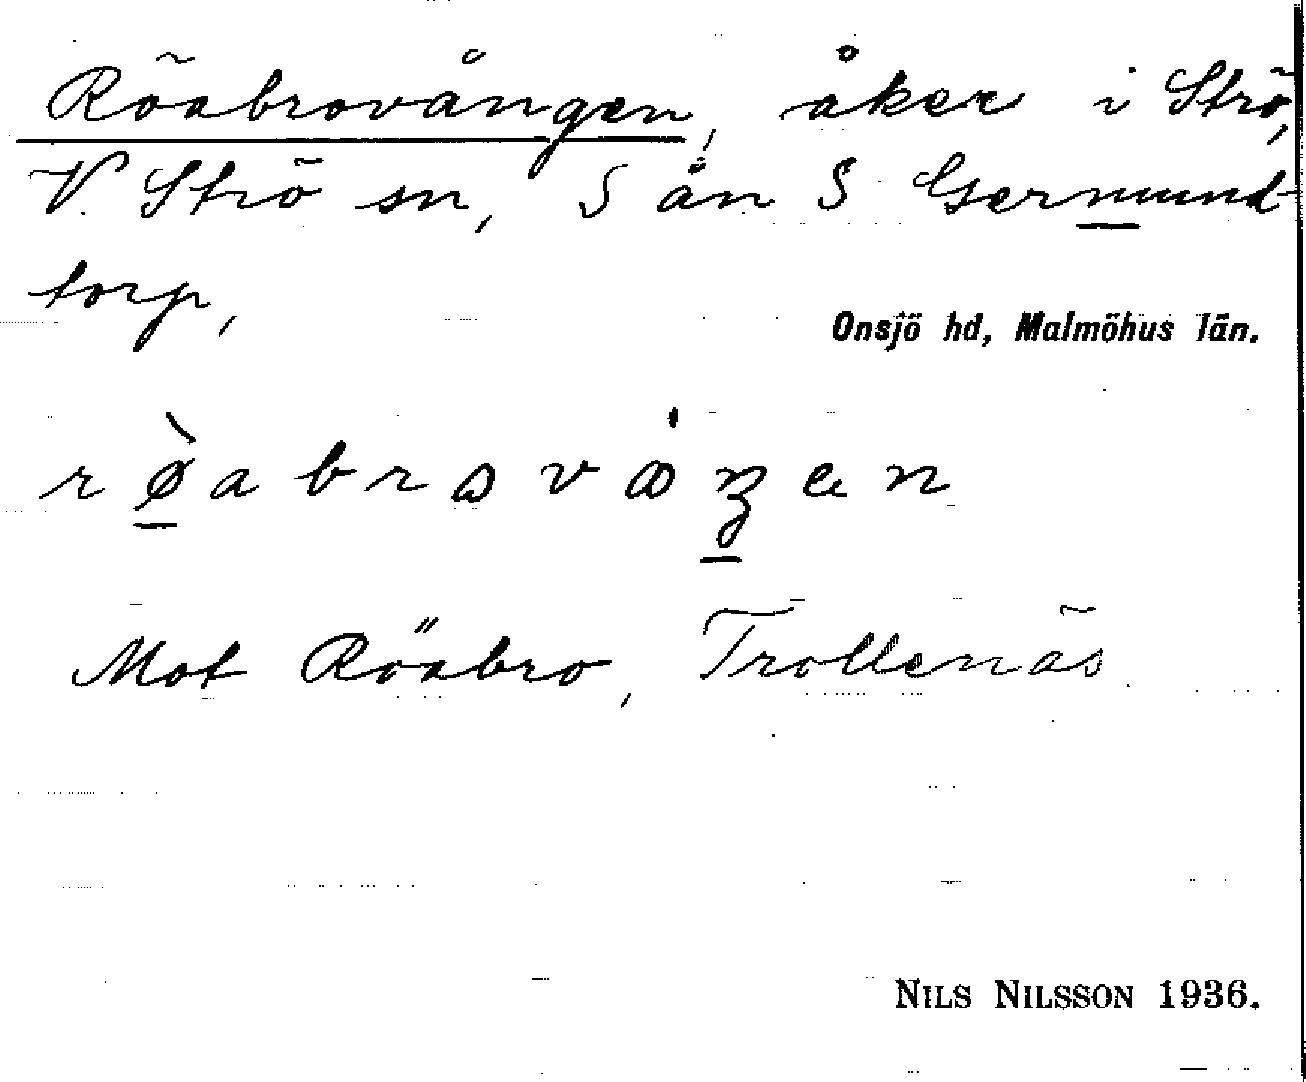 Röabrovången, åker i Strö,
V. Strö sn, S ån S Germund-
torp,
Onsjö hd, Malmöhus län.
Mot Röabro, Trollenäs
NILS NILSSON 1936.